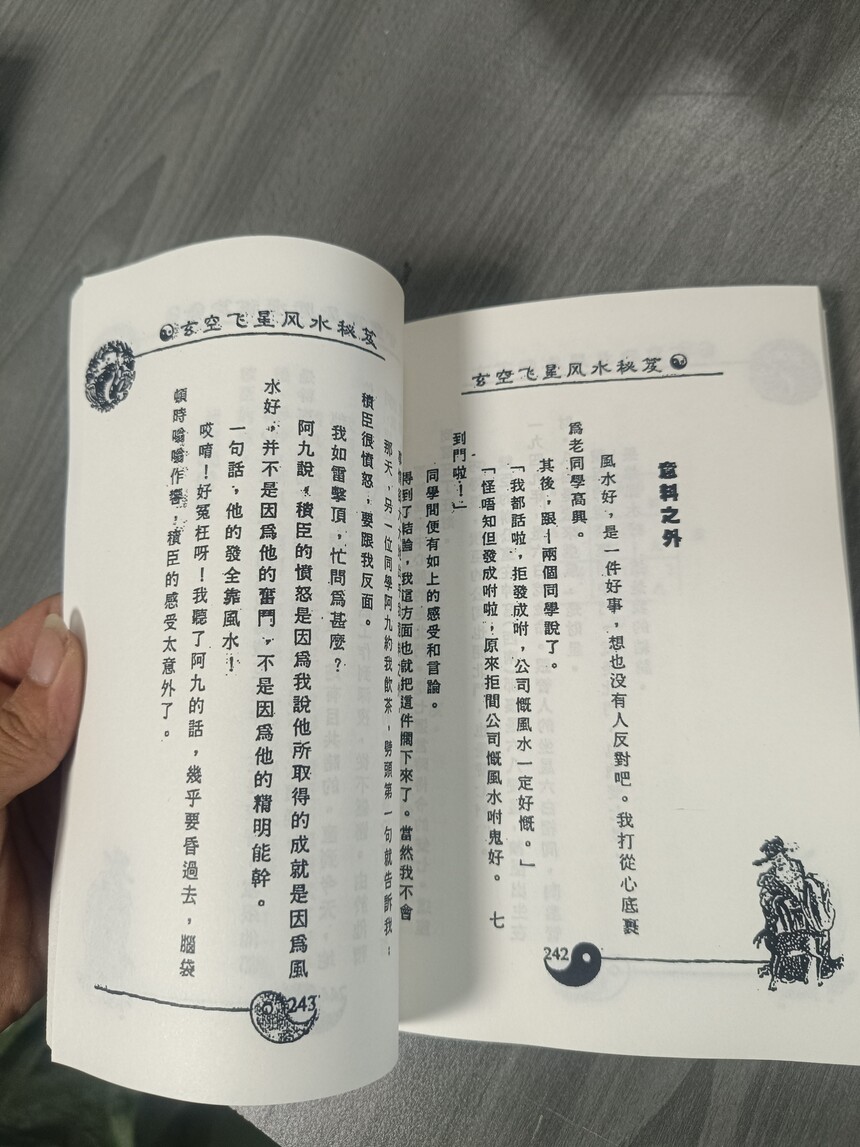 玄空飞星风水秘笈
意料之外
風水好，是一件好事，想也没有人反對吧。我打從心底裹
爲老同學高興。
其後，跟一兩個同學說了。
「我都話啦，拒發成咐，公司慨風水一定好慨。」
「怪唔知但發成咐啦，原來拒間公司慨風水咐鬼好。 七
到門啦！」
同學間便有如上的感受和言論。
得到了結論，我這方面也就把這件擱下來了。當然我不會
242
玄空飞星风水秘笈
那天，另一位同學阿九約我飲茶，劈頭第一句就告訴我，
積臣很憤怒，要跟我反面。
我如雷擊頂，忙問爲甚麼？
阿九說，積臣的憤怒是因爲我說他所取得的成就是因爲風
水好，并不是因爲他的奮鬥，不是因爲他的精明能幹。
一句話，他的發全靠風水！
哎唷！好冤枉呀！我聽了阿九的話，幾乎要昏過去，腦袋
頓時嗡嗡作響，積臣的感受太意外了。
243